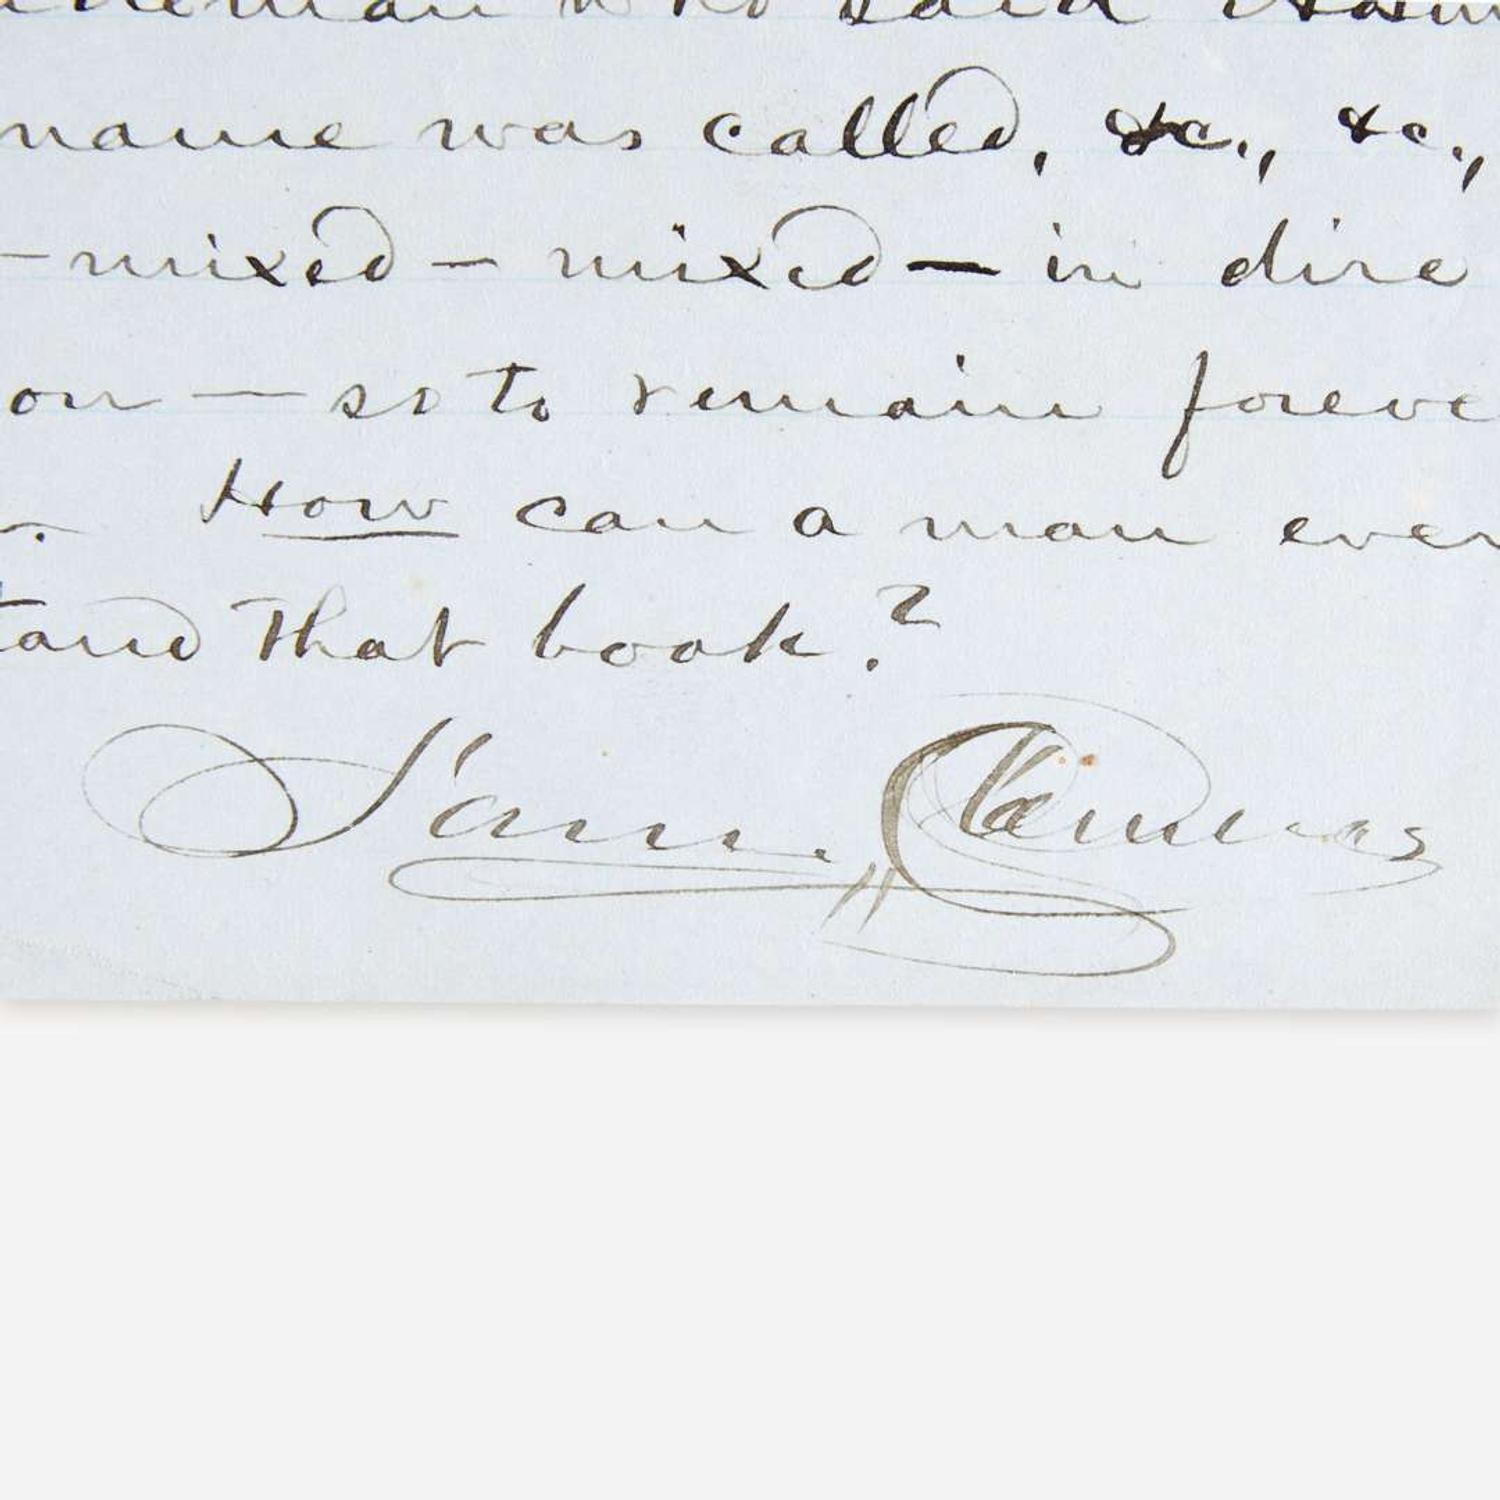 who said
name was called, &c., &c.,
— mixed — mixed — in dire
on — so to remain foreve
. How can a man ever
tand that book?
Sam. Clemens